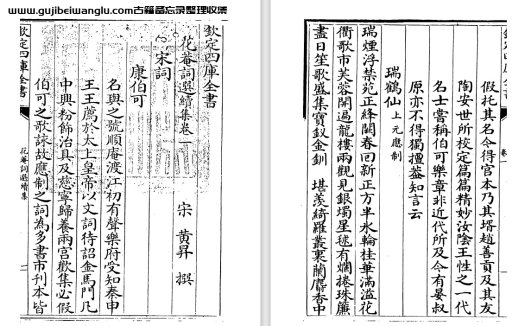 www.gujibeiwanglu.com古籍备忘录整理收集
欽定四庫全書
花菴詞選續集卷一
宋 黃昇 撰
宋詞
康伯可
名與之號順庵渡江初有聲樂府受知秦申
王王薦於太上皇帝以文詞待詔金馬門凡
中興粉飾治具及慈寧歸養兩宮歡集必假
伯可之歌詠故應制之詞為多書市刊本皆
欽定四庫全書
花菴詞選續集
假托其名今得官本乃其壻趙善貢及其友
陶安世所校定篇篇精妙汝陰王性之一代
名士嘗稱伯可樂章非近代所及今有晏叔
原亦不得獨擅蓋知言云
瑞鶴仙 上元應制
瑞煙浮禁苑正絳闕春回新正方半冰輪桂華滿溢花
衢歌市芙蓉開遍龍樓兩觀見銀燭星毬有爛捲珠簾
盡日笙歌盛集寶釵金釧 堪羨綺羅叢裏蘭麝香中